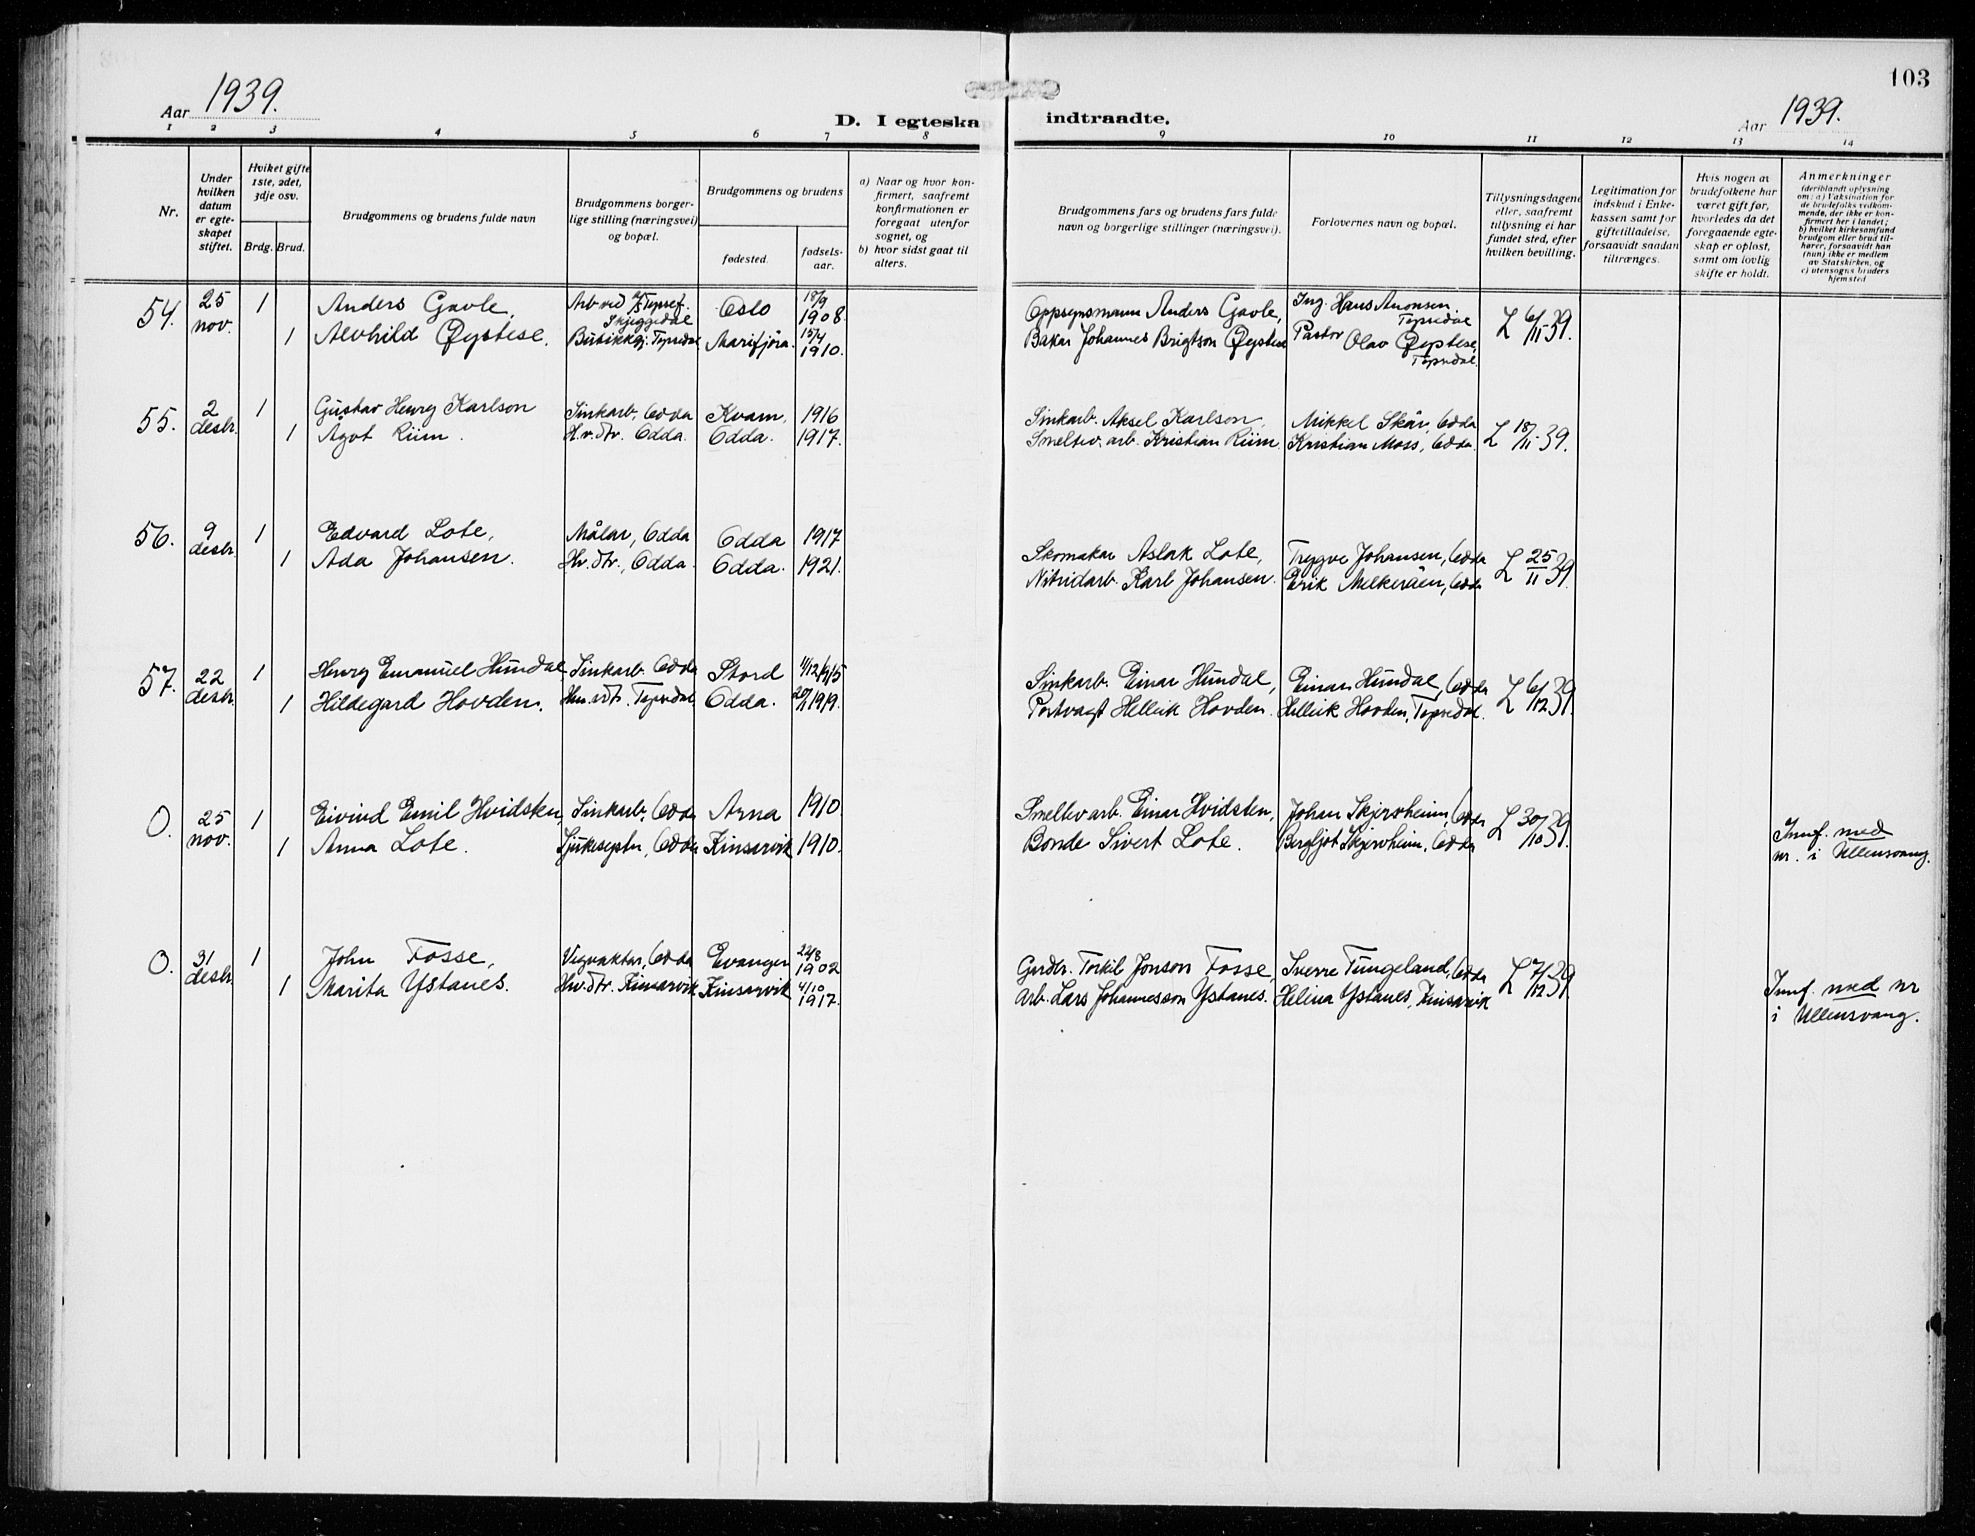 103
Aar 1939.
D. I egteska
indtraadte.
Aar 1939.
1 2 3 4 5 6 7 8 9 10 11 12 13 14
Nr.
Under hvilken datum er egteskapet stiftet.
Hvilket gifte 1ste, 2det, 3dje osv.
Brdg. Brud.
Brudgommens og brudens fulde navn
Brudgommens borgerlige stilling (næringsvei) og bopæl.
Brudgommens og brudens
fødested.
fødselsaar.
a) Naar og hvor konfirmert, saafremt konfirmationen er foregaat utenfor sognet, og
b) hvor sidst gaat til alters.
Brudgommens fars og brudens fars fulde navn og borgerlige stillinger (næringsvei).
Forlovernes navn og bopæl.
Tillysningsdagene eller, saafremt tillysning ei har fundet sted, efter hvilken bevilling.
Legitimation for indskud i Enkekassen samt for giftetilladelse, forsaavidt saadan tiltrænges.
Hvis nogen av brudefolkene har været gift før, hvorledes da det foregaaende egteskap er opløst, samt om lovlig skifte er holdt.
Anmerkninger
(deriblandt oplysning om: a) Vaksination for de brudefolks vedkommende, der ikke er konfirmert her i landet; b) hvilket kirkesamfund brudgom eller brud tilhører, forsaavidt han (hun) ikke er medlem av Statskirken, og c) utensogns bruders hjemsted
54. 25 nov. 1 Anders Gavle, Arb. ved Skjeggedal Oslo 18/9 1908. Oppsynsmann Anders Gavle, Ing. Hans Aronsen, Tyssedal L 6/11 39.
1 Alvhild Øystese. Tyssedal Marifjöra. 15/4 1910. Bakar Johannes Brigtson Øystese Pastor Olav Øystese, Tyssedal.
55. 2 desbr. 1 Gustav Henry Karlson Sinkarb, Odda Kvam, 1916 Sinkarb. Aksel Karlson, Mikkel Skår, Odda L 18/11 39.
1 Ågot Riim. H.v.dtr. Odda. Odda. 1917. Smeltev. arb. Kristian Riim. Kristian Moss, Odda.
56. 9 desbr. 1 Edvard Lote, Målar, Odda Odda 1917 Skomakar Aslak Lote, Trygve Johansen, Odda L 25/11 39.
1 Ada Johansen. Hv. dtr., Odda. Odda. 1921. Nitridarb. Karl Johansen. Erik Melkeråen, Odda
57. 22 desbr. 1 Henry Emanuel Hundal Sinkarb. Odda Stord 4/12 1915 Sinkarb. Einar Hundal, Einar Hundal, Odda L 6/12 39.
1 Hildegard Hovden. Tyssedal Odda. 1919. Portvagt Helleik Hovden. Helleik Hovden, Tyssedal.
0. 25 nov. 1 Eivind Emil Hvidsten, Sinkarb, Odda Arna 1910. Smeltev arb. Einar Hvidsten, Johan Skjervheim, Odda L 30/10 39.
1 Anna Lote. Sjukesyster, Odda Kinsarvik 1910. Bonde Sivert Lote. Bergljot Skjervheim, Odda
Innf. med nr. i Ullensvang.
0. 31 desbr. 1 John Fosse, Vegvaktar, Odda Evanger 22/8 1902 Gardbr. Torkil Jonson Fosse, Sverre Tungeland, Odda L 7/12 39
1 Marita Ystanes. Hv. dtr. Kinsarvik Kinsarvik 4/10 1917. Arb. Lars Johannesson Ystanes. Helina Ystanes, Kinsarvik
Innf. med nr i Ullensvang.